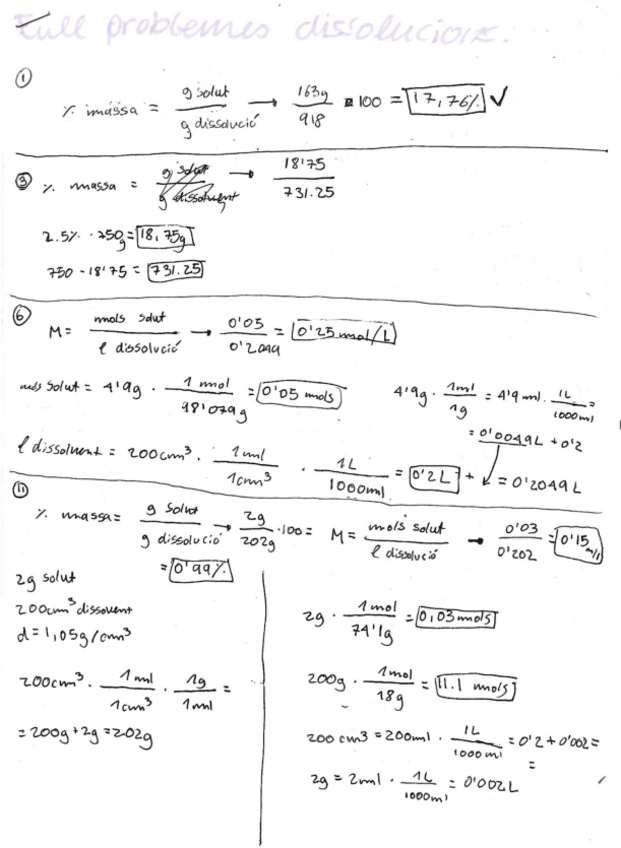 Full problemes dissolucions.
① % massa = g solut / g dissolució → 163g / 918 · 100 = 17,76% ✓
③ % massa = → 18'75 / 731.25
2.5% · 750g = 18,75g
750 - 18'75 = 731.25
⑥ M = mols solut / l dissolució → 0'05 / 0'2049 = 0'25 mol/L
mols solut = 4'9g · 1 mol / 98'079g = 0'05 mols
4'9g · 1ml / 1g = 4'9ml · 1L / 1000ml =
= 0'0049L + 0'2
l dissolvent = 200cm³ · 1ml / 1cm³ · 1L / 1000ml = 0'2L + = 0'2049L
⑪ % massa = g solut / g dissolució → 2g / 202g · 100 =
= 0'99%
M = mols solut / l dissolució → 0'03 / 0'202 = 0'15 m/l
2g solut
200cm³ dissolvent
d = 1,05g/cm³
200cm³ · 1ml / 1cm³ · 1g / 1ml =
= 200g + 2g = 202g
2g · 1 mol / 74'1g = 0,03 mols
200g · 1mol / 18g = 11.1 mols
200 cm3 = 200ml · 1L / 1000ml = 0'2 + 0'002 =
=
2g = 2ml · 1L / 1000ml = 0'002L